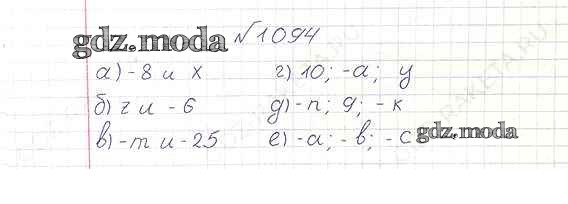 gdz.moda №1094
а) -8 и x г) 10; -a; y
б) r и -6 д) -n; g; -к
в) -m и -25 е) -a; -b; -c gdz.moda